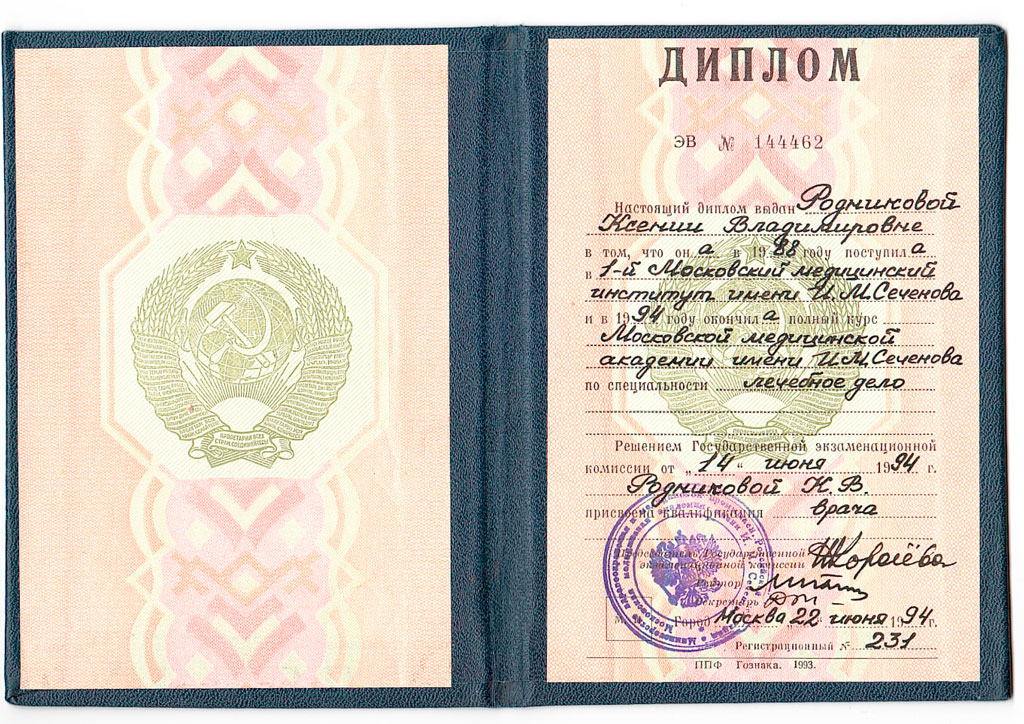 ПРОЛЕТАРИИ ВСЕХ
СТРАН, СОЕДИНЯЙТЕСЬ!
ДИПЛОМ
ЭВ № 144462
Настоящий диплом выдан Родниковой
Ксении Владимировне
в том, что он а в 19 88 году поступил а
в 1-й Московский медицинский
институт имени И.М.Сеченова
и в 19 94 году окончил а полный курс
Московской медицинской
академии имени И.М.Сеченова
по специальности лечебное дело
Решением Государственной экзаменационной
комиссии от „14“ июня 1994 г.
Родниковой К.В.
присвоена квалификация врача
Председатель Государственной
экзаменационной комиссии
Ректор
Секретарь
Город Москва 22 „ “ июня 1994г.
Регистрационный № 231
ППФ Гознака. 1993.